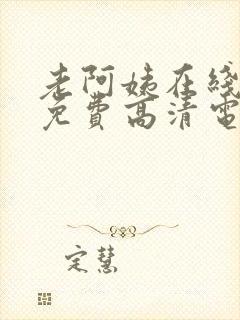 老阿姨在线
免费高清电
定慧